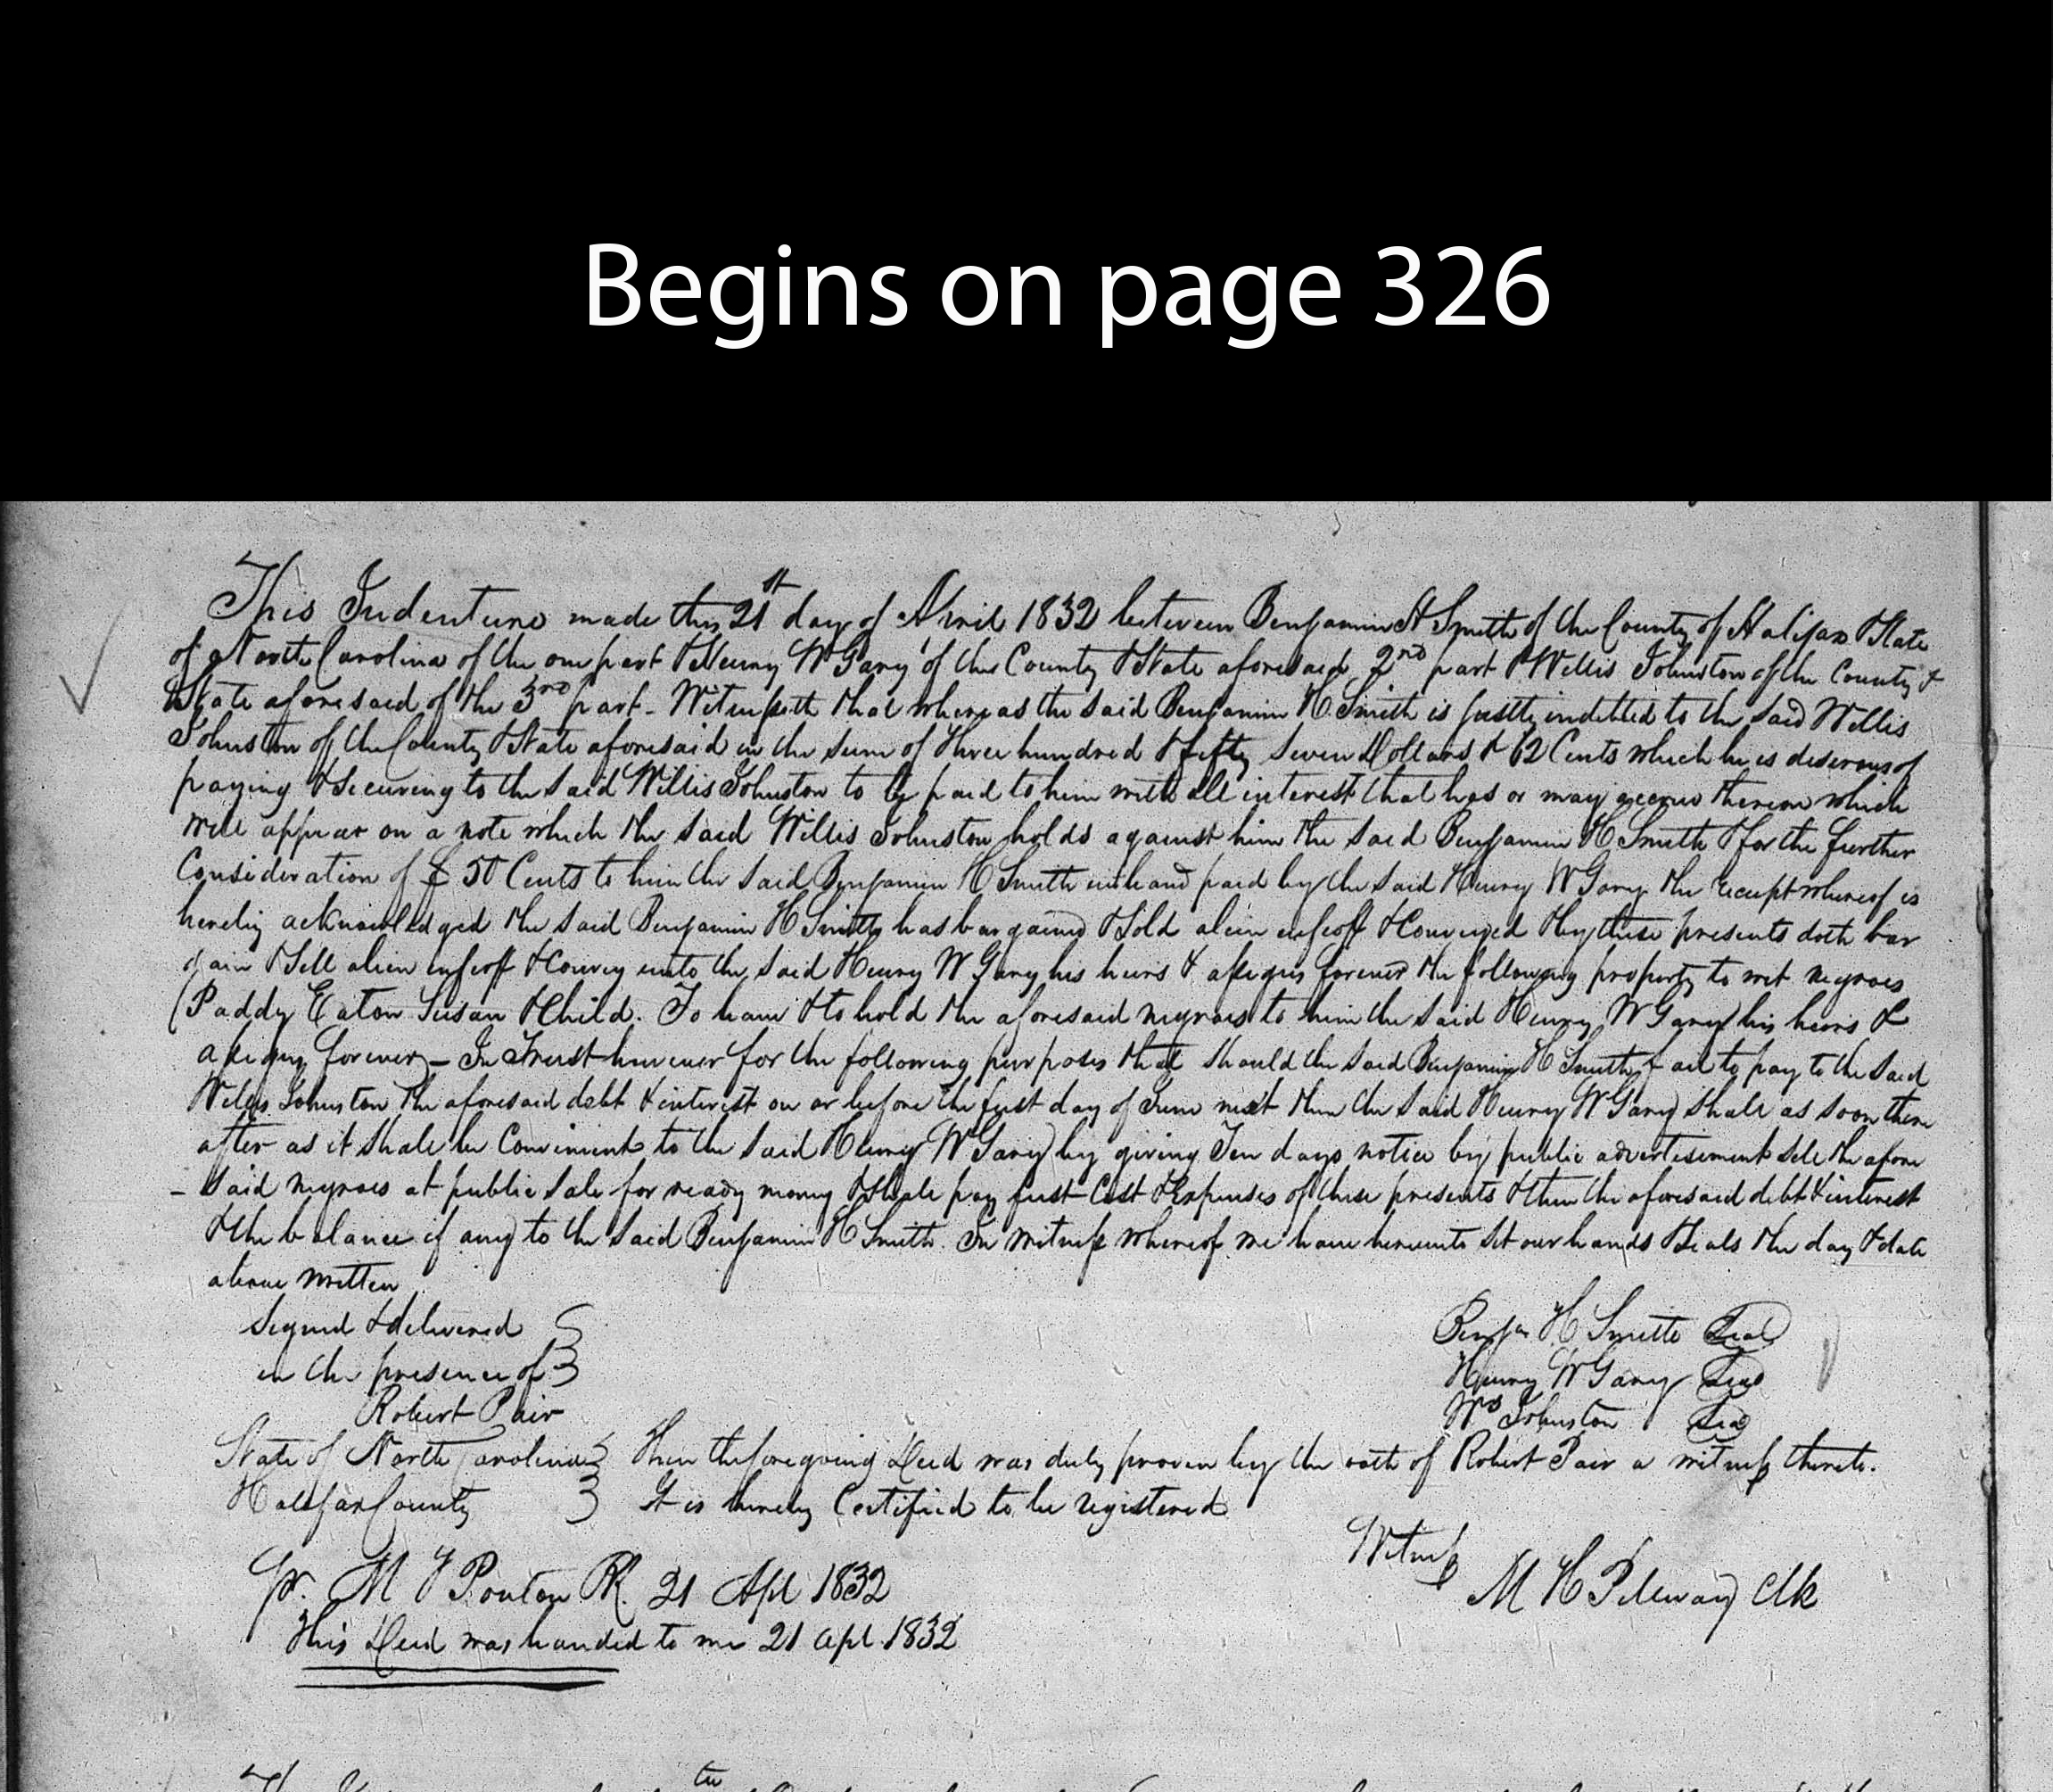 Begins on page 326
This Indenture made this 21st day of April 1832 between Benjamin H Smith of the County of Halifax & State
of North Carolina of the one part & Henry W Gary of the County & State aforesaid 2nd part & Willis Johnston of the County &
State aforesaid of the 3rd part - Witnesseth that whereas the said Benjamin H. Smith is justly indebted to the said Willis
Johnston of the County & State aforesaid in the sum of three hundred & fifty seven Dollars & 62 Cents which he is desirous of
paying & securing to the said Willis Johnston to be paid to him with all interest that has or may accrue thereon which
will appear on a note which the said Willis Johnston holds against him the said Benjamin H Smith & for the further
Consideration of 50 Cents to him the said Benjamin H Smith in hand paid by the said Henry W Gary the receipt whereof is
hereby acknowledged the said Benjamin H Smith has bargained & sold alien enfeoff & Conveyed & by these presents doth bar
gain & Sell alien enfeoff & Convey unto the said Henry W Gary his heirs & assigns forever the following property to wit negroes
(Paddy Eaton Susan & Child. To have & to hold the aforesaid negroes to him the said Henry W Gary his heirs &
assigns forever - In Trust however for the following purposes that should the said Benjamin H Smith fail to pay to the said
Willis Johnston the aforesaid debt & interest on or before the first day of June next then the said Henry W Gary shall as soon there
after as it shall be Convenient to the said Henry W Gary by giving Ten days notice by public advertisement sell the afore
- said negroes at public sale for ready money & shall pay first Cost & Expenses of these presents & then the aforesaid debt & interest
& the balance if any to the said Benjamin H Smith. In witness whereof we have hereunto set our hands & Seals the day & date
above written
Signed & delivered
in the presence of
Robert Pair
Benja H Smith Seal
Henry W Gary Seal
Ws Johnston Seal
State of North Carolina
Halifax County
Then the foregoing Deed was duly proven by the oath of Robert Pair a witness thereto.
It is hereby Certified to be registered
Witness
M H Pettway Clk
pr. M T Ponton PR. 21 Apl 1832
This Deed was handed to me 21 apl. 1832